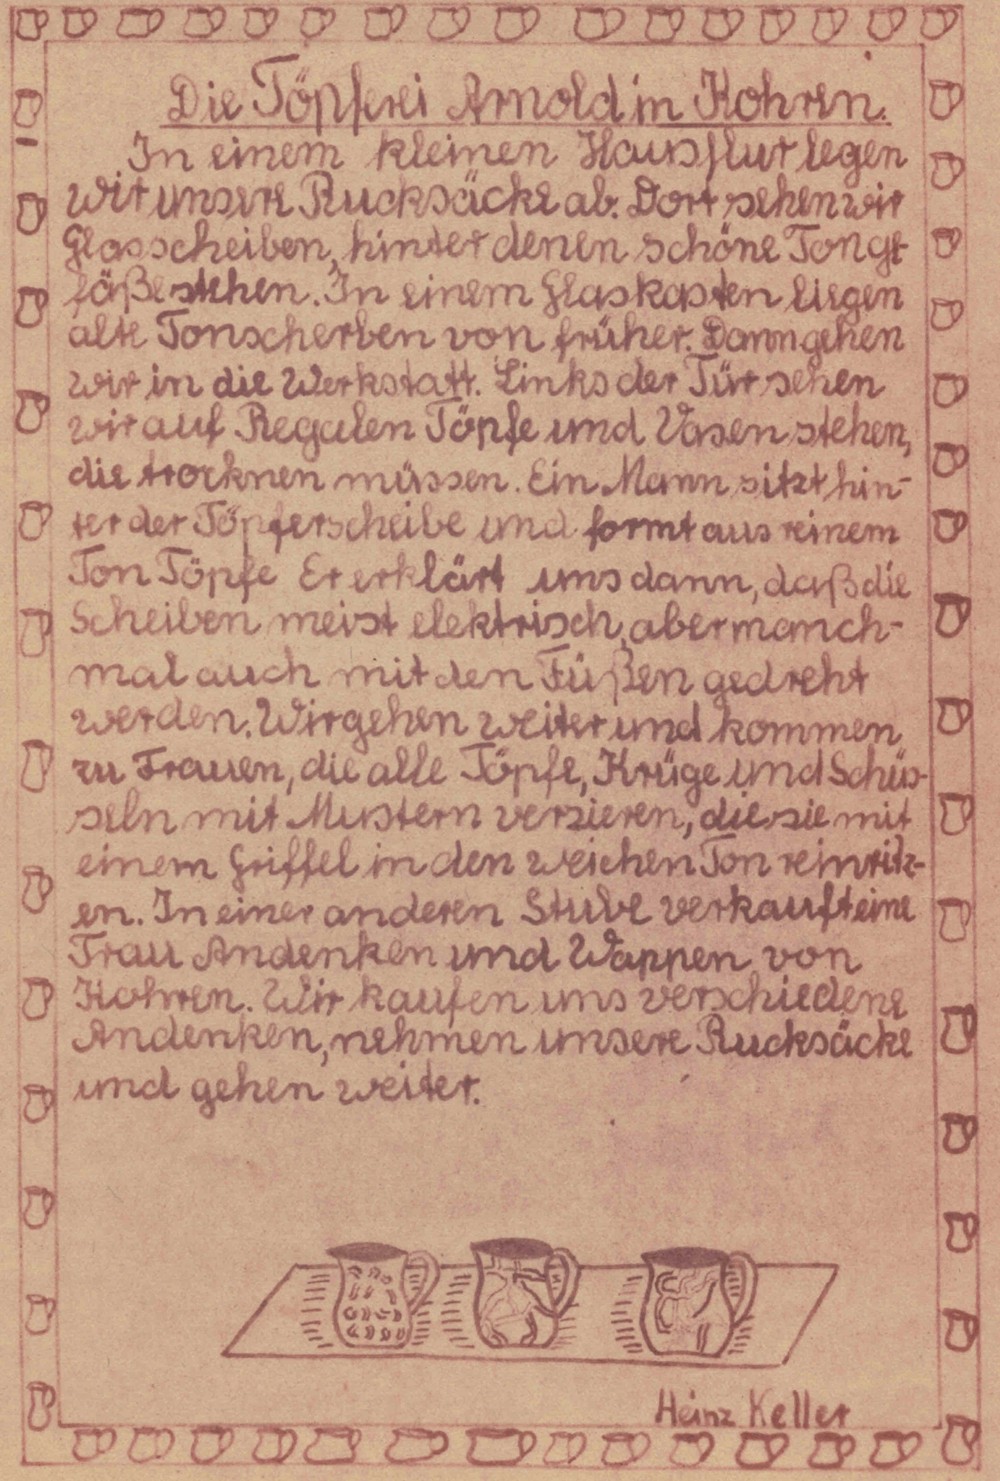 Die Töpferei Arnold in Kohren.
In einem kleinen Hausflur legen
wir unsere Rucksäcke ab. Dort sehen wir
Glasscheiben, hinter denen schöne Tonge
fäße stehen. In einem Glaskasten liegen
alte Tonscherben von früher. Dann gehen
wir in die Werkstatt. Links der Tür sehen
wir auf Regalen Töpfe und Vasen stehen,
die trocknen müssen. Ein Mann sitzt hin-
ter der Töpferscheibe und formt aus reinem
Ton Töpfe Er erklärt uns dann, daß die
Scheiben meist elektrisch, aber manch-
mal auch mit den Füßen gedreht
werden. Wir gehen weiter und kommen
zu Frauen, die alle Töpfe, Krüge und Schüs-
seln mit Mustern verzieren, die sie mit
einem Griffel in den weichen Ton reinritz-
en. In einer anderen Stube verkauft eine
Frau Andenken und Wappen von
Kohren. Wir kaufen uns verschiedene
Andenken, nehmen unsere Rucksäcke
und gehen weiter.
Heinz Keller